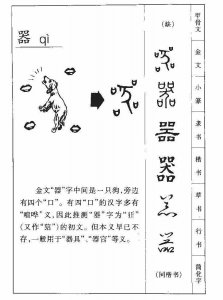 器 qì
(缺)
器
器
器
(同楷书)
甲骨文
金文
小篆
隶书
楷书
草书
行书
简化字
金文“器”字中间是一只狗，旁边
有四个“口”。有四“口”的汉字多有
“喧哗”义，因此推测“器”字为“狂”
(又作“㹵”)的初文。但本义早已不
存，一般用于“器具”、“器官”等义。